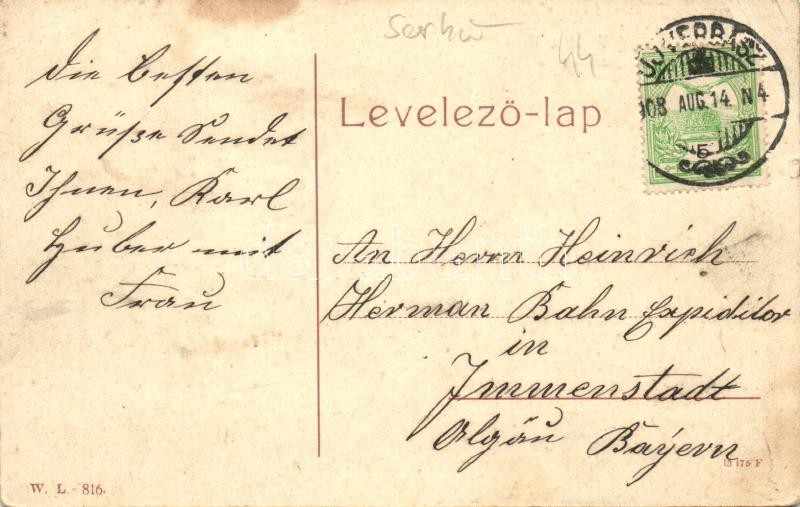 Die besten
Grüße Sendet
Ihnen, Karl
Huber mit
Frau
44
Levelező-lap
908 AUG. 14. N 4
5
An Herrn Heinrich
Herman Bahn Expiditor
in
Immenstadt
Algäu Bayern
13 175 F
W. L. - 816.